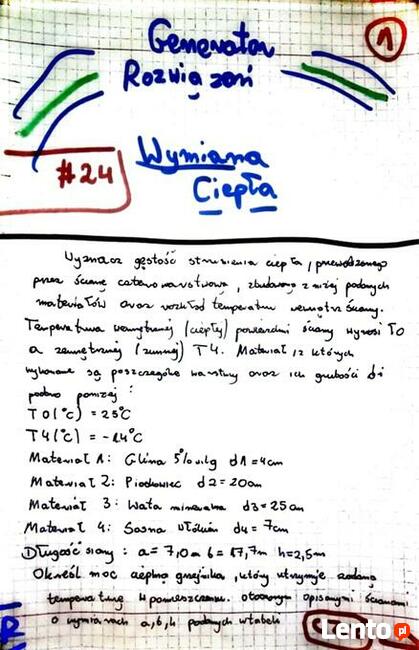 Generator
Rozwiązań
1
Wymiana
Ciepła
#24
Wyznacz gęstość strumienia ciepła, przewodzonego
przez ścianę czterowarstwową, zbudowaną z niżej podanych
materiałów oraz rozkład temperatur wewnątrz ściany.
Temperatura wewnętrznej (ciepłej) powierzchni ściany wynosi T0
a zewnętrznej (zimnej) T4. Materiał, z których
wykonane są poszczególne warstwy oraz ich grubości di
podano poniżej:
T0(°C) = 25°C
T4(°C) = -14°C
Materiał 1: Glina 5% wilg d1=4cm
Materiał 2: Piaskowiec d2=20cm
Materiał 3: Wata mineralna d3=25cm
Materiał 4: Sosna włókien d4=7cm
Długość ściany: a=7,0m b=17,7m h=2,5m
Określ moc cieplną grzejnika, który utrzymuje zadaną
temperaturę w pomieszczeniu otoczonym opisanymi ścianami
o wymiarach a, b, h podanych w tabeli
R
Lento.pl